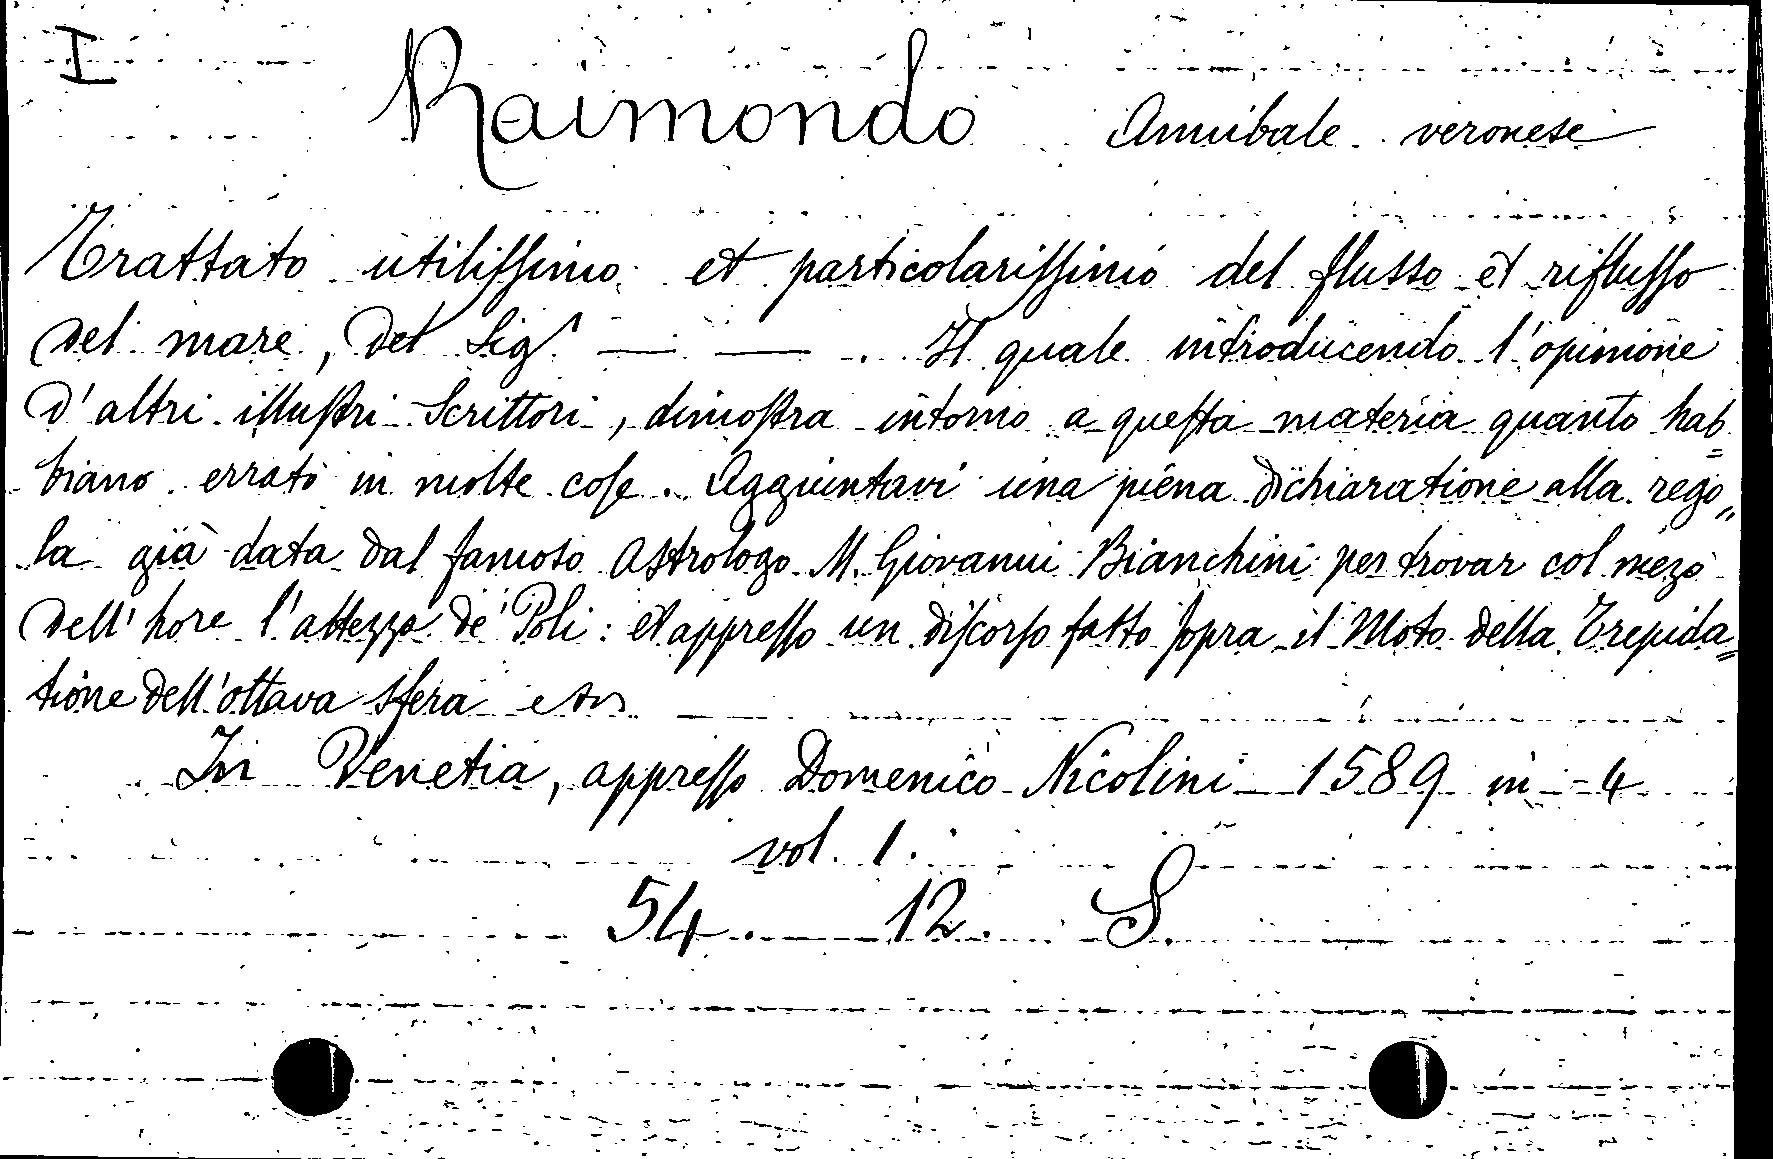 I
Raimondo Annibale veronese
Trattato utiliſſimo et particolariſſimo del flusso et rifluſſo
del mare, del Sigr. — — . Il quale introducendo l'opinione
d'altri illuſtri Scrittori, dimoſtra intorno a queſta materia quanto hab=
biano errato in molte coſe. Aggiuntavi una piena dichiaratione alla rego„
la già data dal famoso Astrologo M. Giovanni Bianchini per trovar col mezo
dell'hore l'altezza de' Poli: et appreſſo un diſcorſo fatto ſopra il Moto della Trepida=
tione dell'ottava sfera etc
In Venetia, appreſſo Domenico Nicolini 1589 in-4
vol. 1.
54. 12. S.